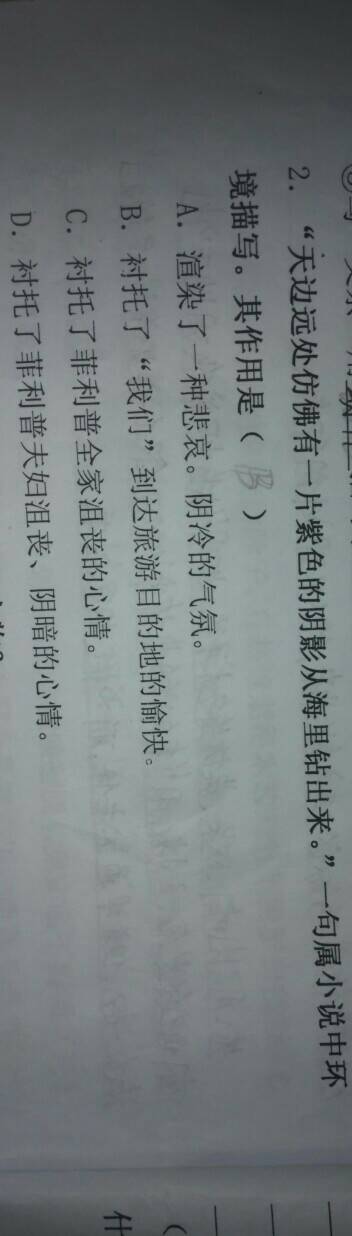 2. “天边远处仿佛有一片紫色的阴影从海里钻出来。”一句属小说中环
境描写。其作用是（ B ）
A. 渲染了一种悲哀。阴冷的气氛。
B. 衬托了“我们”到达旅游目的地的愉快。
C. 衬托了菲利普全家沮丧的心情。
D. 衬托了菲利普夫妇沮丧、阴暗的心情。
（
什